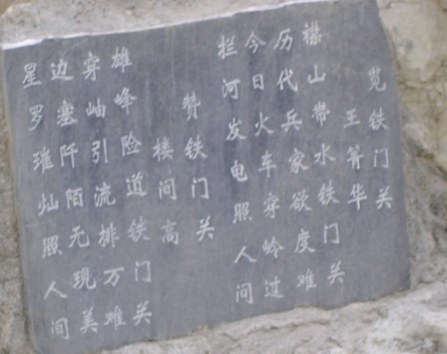 览铁门关
王箐华
襟山带水铁门关
历代兵家欲度难
今日火车穿岭过
拦河发电照人间
赞铁门关
楼间高
雄峰险道铁门关
穿岫引流排万难
边塞阡陌无现美
星罗璀灿照人间